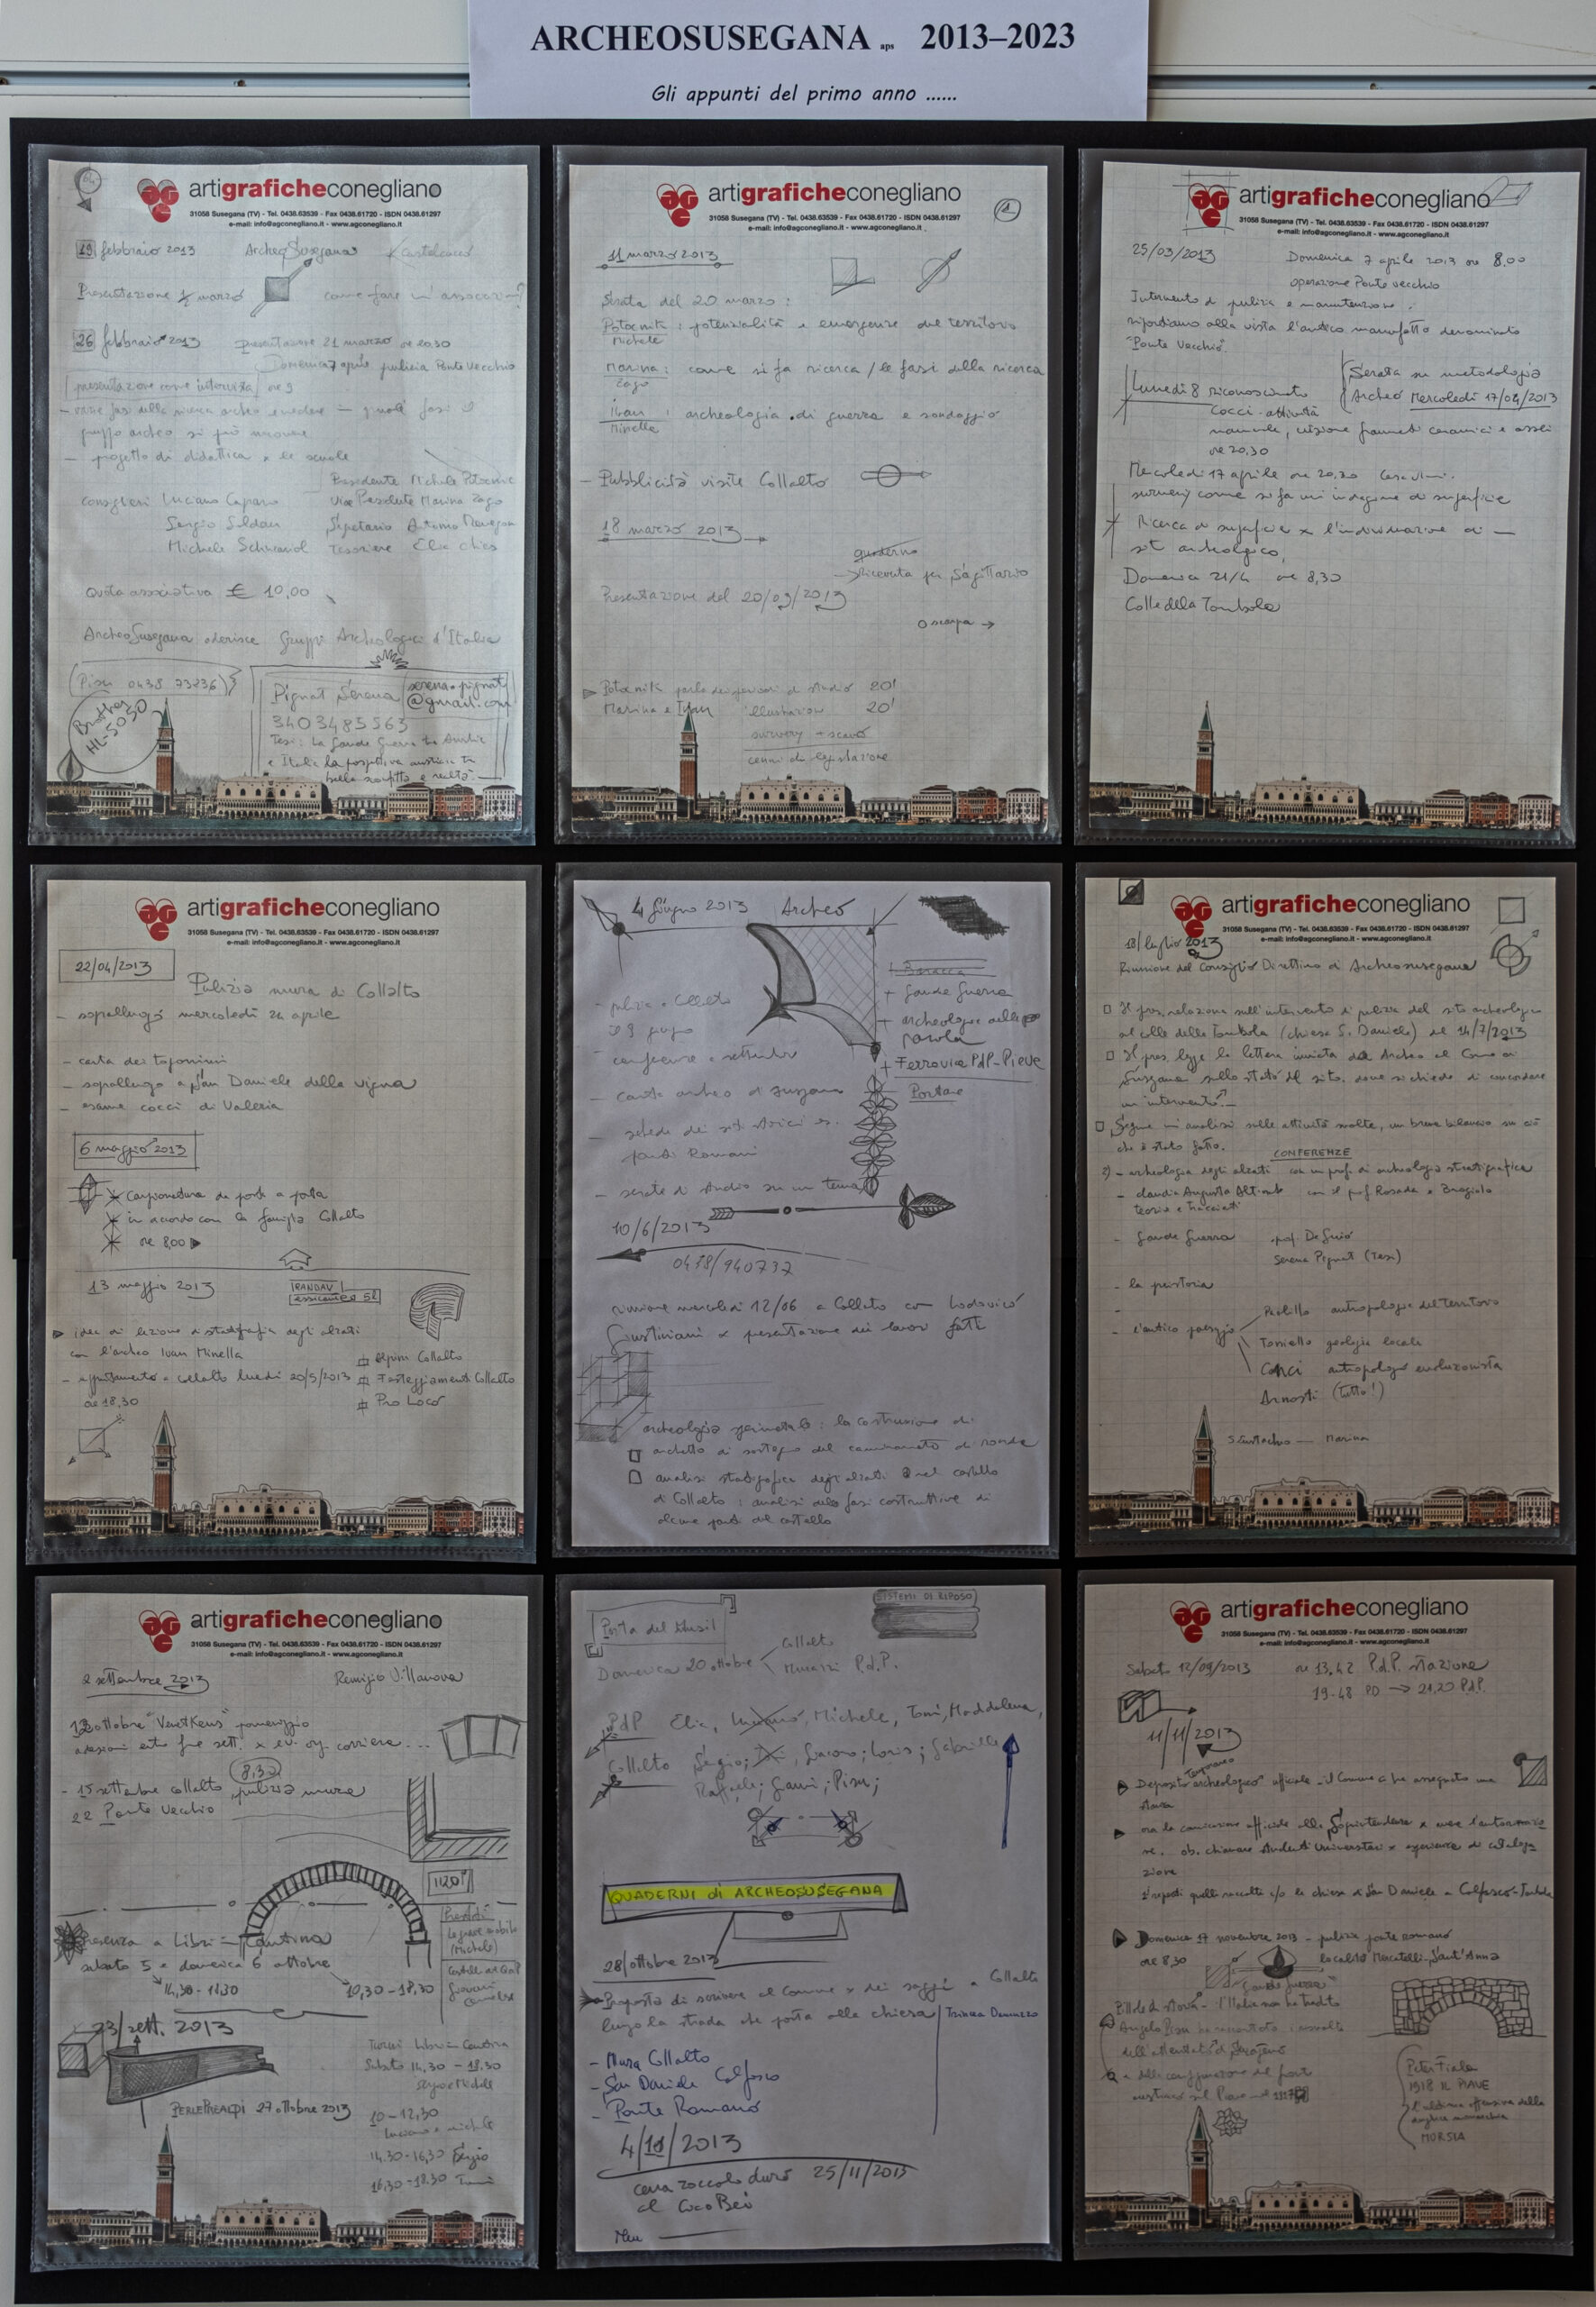 ARCHEOSUSEGANA aps 2013–2023
Gli appunti del primo anno ......
artigraficheconegliano
31058 Susegana (TV) - Tel. 0438.63539 - Fax 0438.61720 - ISDN 0438.61297
e-mail: info@agconegliano.it - www.agconegliano.it
19 febbraio 2013 ArcheoSusegana
Presentazione marzo come fare un
26 febbraio 2013 presentazione 21 marzo ore 20.30
Domenica 7 aprile pulizia Ponte Vecchio
presentazione come intervista ore 9
gruppo archeo si può muovere
– progetto di didattica x le scuole
Presidente Michele Potocnik
consiglieri Luciano Vice Presidente Marina Zago
Sergio Soldan Segretario Antonio Menegon
Michele Tesoriere Elia
Quota associativa € 10,00
ArcheoSusegana aderisce Gruppi Archeologici d'Italia
(Pisu 0438 73236)
Brother HL-5050
Pignat Serena serena.pignat@gmail.com
3403485563
Tesi: La Grande Guerra tra Austria
e Italia la prospettiva austriaca tra
sconfitta e realtà
artigraficheconegliano
31058 Susegana (TV) - Tel. 0438.63539 - Fax 0438.61720 - ISDN 0438.61297
e-mail: info@agconegliano.it - www.agconegliano.it
11 marzo 2013
Serata del 20 marzo:
Potocnik: potenzialità e emergenze del territorio
Michele
Marina: come si fa ricerca / le fasi della ricerca
Zago
Ivan: archeologia di guerra e sondaggio
Minella
– Pubblicità visite Collalto
18 marzo 2013
quaderno
→ Ricevuta per Sagittario
Presentazione del 20/03/2013
o scarpa →
Potocnik parla dei percorsi di studio 20'
Marina e Ivan illustrazione 20'
survery + scavo
cenni di legislazione
artigraficheconegliano
31058 Susegana (TV) - Tel. 0438.63539 - Fax 0438.61720 - ISDN 0438.61297
e-mail: info@agconegliano.it - www.agconegliano.it
25/03/2013 Domenica 7 aprile 2013 ore 8.00
operazione Ponte vecchio
Intervento di pulizia e manutenzione.
riportiamo alla vista l'antico manufatto denominato
"Ponte Vecchio".
Lunedì 8 riconoscimento Serata su metodologia
cocci – attività Archeo Mercoledì 17/04/2013
manuale, visione frammenti ceramici e
ore 20,30
Mercoledì 17 aprile ore 20,30
survery come si fa un'indagine di superficie
Ricerca di superficie x l'individuazione di
siti archeologico,
Domenica 21/4 ore 8,30
Colle della Tombola
artigraficheconegliano
31058 Susegana (TV) - Tel. 0438.63539 - Fax 0438.61720 - ISDN 0438.61297
e-mail: info@agconegliano.it - www.agconegliano.it
22/04/2013
Pulizia mura di Collalto
– sopralluogo mercoledì 24 aprile
– carta dei toponimi
– sopralluogo a San Daniele della vigna
– esame cocci di Valeria
6 maggio 2013
Campionatura da porta a porta
in accordo con la famiglia Collalto
ore 8,00
13 maggio 2013 RANDAV
essicante 5l
idea di lezione di stratigrafia degli alzati
con l'archeo Ivan Minella # Alpini Collalto
– appuntamento a Collalto lunedì 20/5/2013 # Festeggiamenti Collalto
ore 18,30 # Pro Loco
4 giugno 2013 Archeo
– pulizia a Collalto + Grande Guerra
il 9 giugno + archeologia della parola
– conferenze a settembre + Ferrovia PdP-Pieve
– carta archeo di Susegana Portare
– schede dei siti storici es.
ponti Romani
– serate di studio su un tema
10/6/2013
0438/940737
riunione mercoledì 12/06 a Collalto con Lodovico
Giustiniani x presentazione dei lavori fatti
archeologia sperimentale: la costruzione di
archetto di sostegno del camminamento di ronda
analisi stratigrafica degli alzati nel castello
di Collalto: analisi delle fasi costruttive di
alcune parti del castello
artigraficheconegliano
31058 Susegana (TV) - Tel. 0438.63539 - Fax 0438.61720 - ISDN 0438.61297
e-mail: info@agconegliano.it - www.agconegliano.it
18/luglio 2013
Riunione del Consiglio Direttivo di Archeosusegana
Il pres. relazione sull'intervento di pulizia del sito archeologico
al colle della Tombola (chiesa S. Daniele) del 14/7/2013
Il pres. legge la lettera inviata da Archeo al Comune di
Susegana sullo stato del sito. dove si chiede di concordare
un intervento.
Segue un'analisi sulle attività svolte, un breve bilancio su ciò
che è stato fatto. CONFERENZE
2) – archeologia degli alzati con un prof. di archeologia stratigrafica
– claudia Augusta Altinate con il prof Rosada e
teorie e tracciati
– Grande Guerra prof.
Serena Pignat (Tesi)
– la preistoria
– l'antico paesaggio antropologia del territorio
Toniello geologia locale
antropologo evoluzionista
Arnosti (Tutto!)
S. Eustachio — Marina
artigraficheconegliano
31058 Susegana (TV) - Tel. 0438.63539 - Fax 0438.61720 - ISDN 0438.61297
e-mail: info@agconegliano.it - www.agconegliano.it
2 settembre 2013 Remigio Villanova
ottobre "VenetKens" pomeriggio
adesioni entro fine sett. x ev. org. corriera...
8,30
– 15 settembre Collalto pulizia mura
22 Ponte Vecchio
1120
Presenza a Libri in Cantina
sabato 5 e domenica 6 ottobre
14,30 - 18,30 10,30 - 18,30
23/sett. 2013
Turni Libri in Cantina
Sabato 14,30 – 18,30
Sergio e Michele
PERLEPREALPI 27 ottobre 2013
10 – 12,30
Luciano e michele
14.30 – 16,30 Sergio
16,30 – 18.30
Porta del Musil SISTEMI DI RIPOSO
Domenica 20 ottobre Collalto
Murazzi P.d.P.
PdP Elia, Michele, Toni, Maddalena,
Collalto Sergio; Giacomo; Loris; Gabriella
Raffaele; Gianni; Pisu;
QUADERNI di ARCHEOSUSEGANA
28/ottobre 2013
Proposta di scrivere al Comune x dei saggi a Collalto
lungo la strada che porta alla chiesa
– Mura Collalto
– San Daniele Colfosco
– Ponte Romano
4/11/2013
cena zoccolo duro 25/11/2013
al Coco Beo
artigraficheconegliano
31058 Susegana (TV) - Tel. 0438.63539 - Fax 0438.61720 - ISDN 0438.61297
e-mail: info@agconegliano.it - www.agconegliano.it
Sabato 12/09/2013 ore 13.42 P.d.P. stazione
19.48 PD → 21,20 P.d.P.
11/11/2013
temporaneo
Deposito archeologico ufficiale – il Comune ci ha assegnato una
stanza
ora la comunicazione ufficiale alla Soprintendenza x avere l'autorizzazio
ne. ob. chiamare studenti Universitari x esperienze di cataloga-
zione
reperti quelli raccolti c/o la chiesa di San Daniele a Colfosco-Tombola
Domenica 17 novembre 2013 – pulizia ponte romano
ore 8,30 località Mercatelli, Sant'Anna
"Grande Guerra"
l'Italia non ha tradito
Angelo Pisu ha raccontato
dell'attentato di Sarajevo
e della configurazione del fronte
austriaco sul Piave nel 1917
Peter Fiala
1918 IL PIAVE
l'ultima offensiva della
duplice monarchia
MURSIA